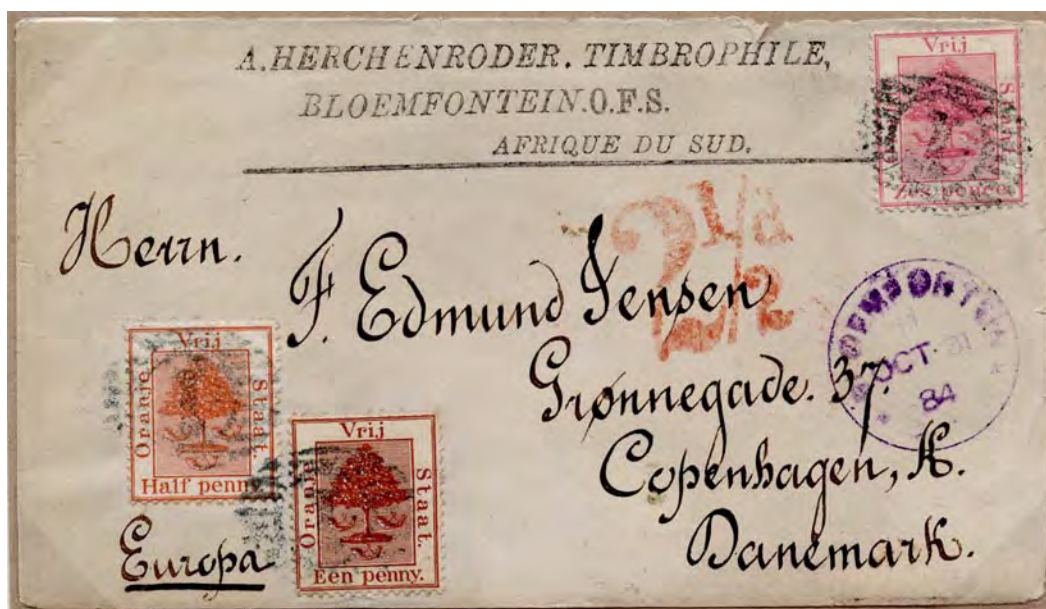 A. HERCHENRODER. TIMBROPHILE,
BLOEMFONTEIN.O.F.S.
AFRIQUE DU SUD.
Vrij
Zes pence
2 1/2 d
Herrn.
F. Edmund Jensen
Grønnegade. 37.
Copenhagen, K.
Danemark.
BLOEMFONTEIN
OCT 31
84
Vrij
Oranje
Staat.
Half penny
Vrij
Oranje
Staat.
Een penny.
Europa